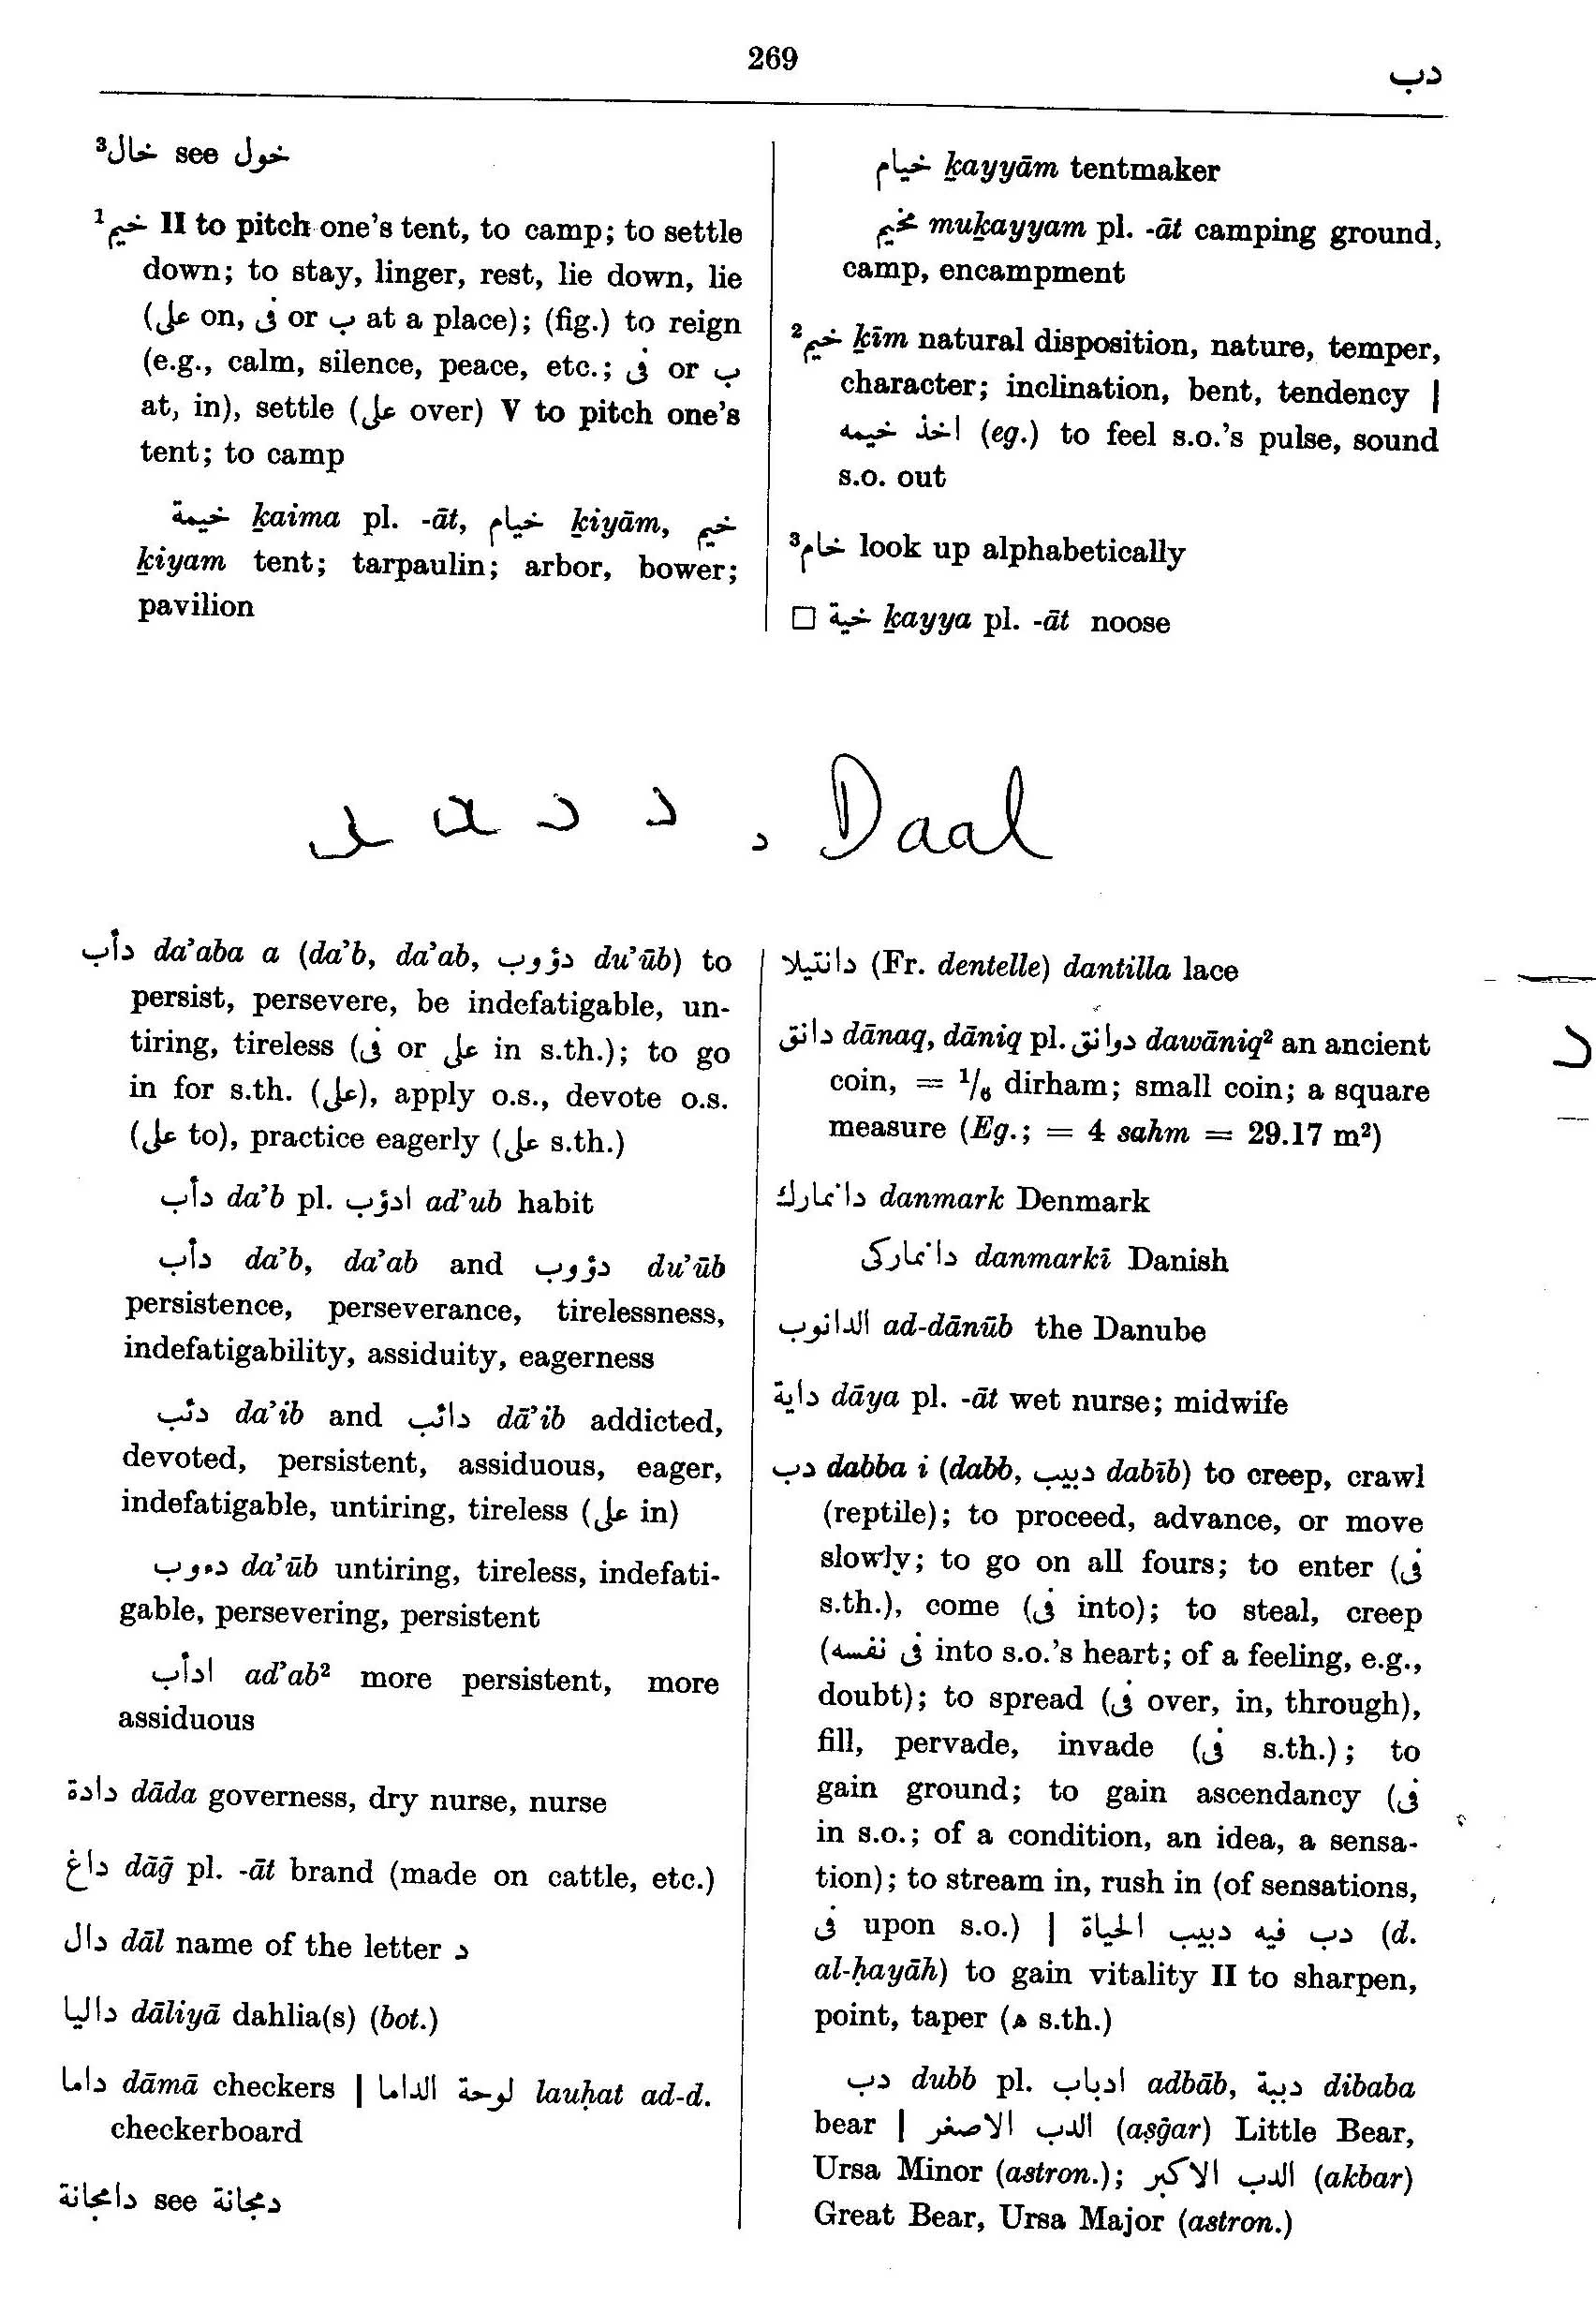 269
دب
³خال see خول
¹خيم II to pitch one's tent, to camp; to settle
down; to stay, linger, rest, lie down, lie
(على on, فى or ب at a place); (fig.) to reign
(e.g., calm, silence, peace, etc.; فى or ب
at, in), settle (على over) V to pitch one's
tent; to camp
خيمة ḵaima pl. -āt, خيام ḵiyām, خيم
ḵiyam tent; tarpaulin; arbor, bower;
pavilion
خيام ḵayyām tentmaker
مخيم muḵayyam pl. -āt camping ground,
camp, encampment
²خيم ḵīm natural disposition, nature, temper,
character; inclination, bent, tendency |
اخذ خيمه (eg.) to feel s.o.'s pulse, sound
s.o. out
³خام look up alphabetically
□ خية ḵayya pl. -āt noose
د د د . Daal
دأب da’aba a (da’b, da’ab, دؤوب du’ūb) to
persist, persevere, be indefatigable, un-
tiring, tireless (فى or على in s.th.); to go
in for s.th. (على), apply o.s., devote o.s.
(على to), practice eagerly (على s.th.)
دأب da’b pl. ادؤب ad’ub habit
دأب da’b, da’ab and دؤوب du’ūb
persistence, perseverance, tirelessness,
indefatigability, assiduity, eagerness
دئب da’ib and دائب dā’ib addicted,
devoted, persistent, assiduous, eager,
indefatigable, untiring, tireless (على in)
دءوب da’ūb untiring, tireless, indefati-
gable, persevering, persistent
ادأب ad’ab² more persistent, more
assiduous
دادة dāda governess, dry nurse, nurse
داغ dāḡ pl. -āt brand (made on cattle, etc.)
دال dāl name of the letter د
داليا dāliyā dahlia(s) (bot.)
داما dāmā checkers | لوحة الداما lauḥat ad-d.
checkerboard
دامجانة see دمجانة
دانتيلا (Fr. dentelle) dantilla lace
دانق dānaq, dāniq pl. دوانق dawāniq² an ancient
coin, = ¹/₆ dirham; small coin; a square
measure (Eg.; = 4 sahm = 29.17 m²)
دانمارك danmark Denmark
دانماركى danmarkī Danish
الدانوب ad-dānūb the Danube
داية dāya pl. -āt wet nurse; midwife
دب dabba i (dabb, دبيب dabīb) to creep, crawl
(reptile); to proceed, advance, or move
slowly; to go on all fours; to enter (فى
s.th.), come (فى into); to steal, creep
(فى نفسه into s.o.'s heart; of a feeling, e.g.,
doubt); to spread (فى over, in, through),
fill, pervade, invade (فى s.th.); to
gain ground; to gain ascendancy (فى
in s.o.; of a condition, an idea, a sensa-
tion); to stream in, rush in (of sensations,
فى upon s.o.) | دب فيه دبيب الحياة (d.
al-ḥayāh) to gain vitality II to sharpen,
point, taper (ه s.th.)
دب dubb pl. ادباب adbāb, دببة dibaba
bear | الدب الاصغر (aṣḡar) Little Bear,
Ursa Minor (astron.); الدب الاكبر (akbar)
Great Bear, Ursa Major (astron.)